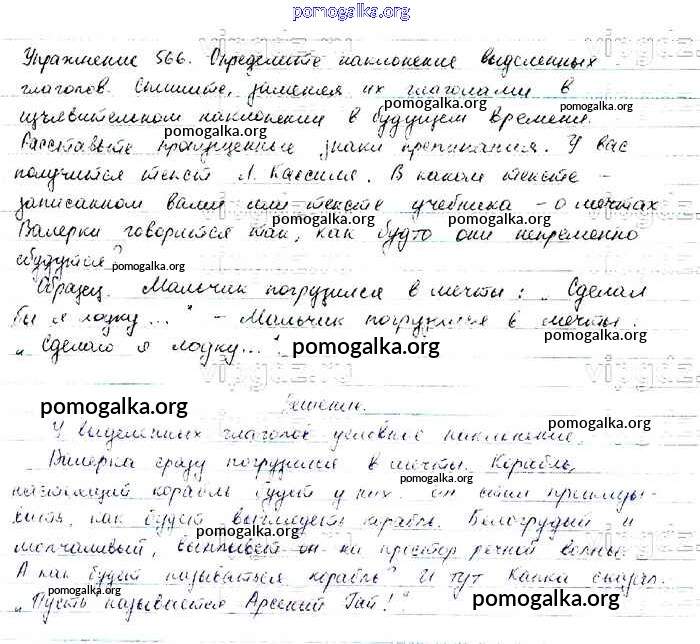 pomogalka.org
Упражнение 566. Определите наклонение выделенных
глаголов. Спишите, заменяя их глаголами в
pomogalka.org
pomogalka.org
изъявительном наклонении в будущем времени.
pomogalka.org
Расставьте пропущенные знаки препинания. У вас
получится текст Л. Кассиля. В каком тексте –
pomogalka.org
записанном вами или тексте учебника – о мечтах
pomogalka.org
pomogalka.org
Валерки говорится так, как будто они непременно
сбудутся?
pomogalka.org
Образец. Мальчик погрузился в мечты: „Сделал
бы я лодку..." – Мальчик погрузился в мечты:
„Сделаю я лодку...".
pomogalka.org
pomogalka.org
pomogalka.org
Решение.
pomogalka.org
У выделенных глаголов условное наклонение.
Валерка сразу погрузился в мечты. Корабль,
настоящий корабль будет у них. Он стал прикиды-
pomogalka.org
вать, как будет выглядеть корабль. Белогрудый и
pomogalka.org
молчаливый, выплывет он на простор речной волны.
А как будет называться корабль? И тут Капка сказал.
„Пусть называется Арсений Гай!"
pomogalka.org
pomogalka.org